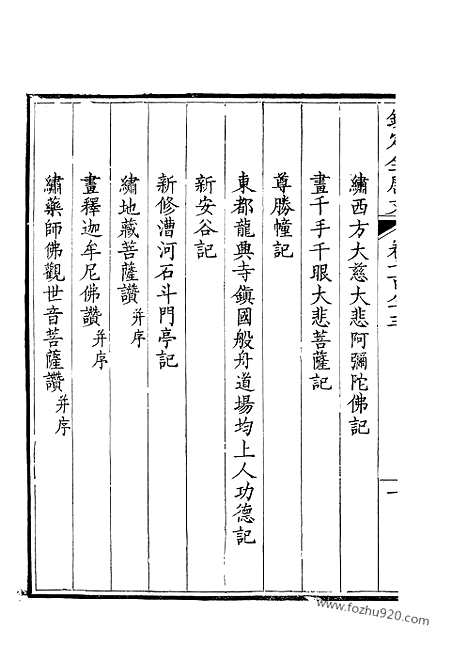 繡西方大慈大悲阿彌陀佛記
畫千手千眼大悲菩薩記
尊勝幢記
東都龍興寺鎮國般舟道場均上人功德記
新安谷記
新修漕河石斗門亭記
繡地藏菩薩讚并序
畫釋迦牟尼佛讚并序
繡藥師佛觀世音菩薩讚并序
www.fozhu920.com